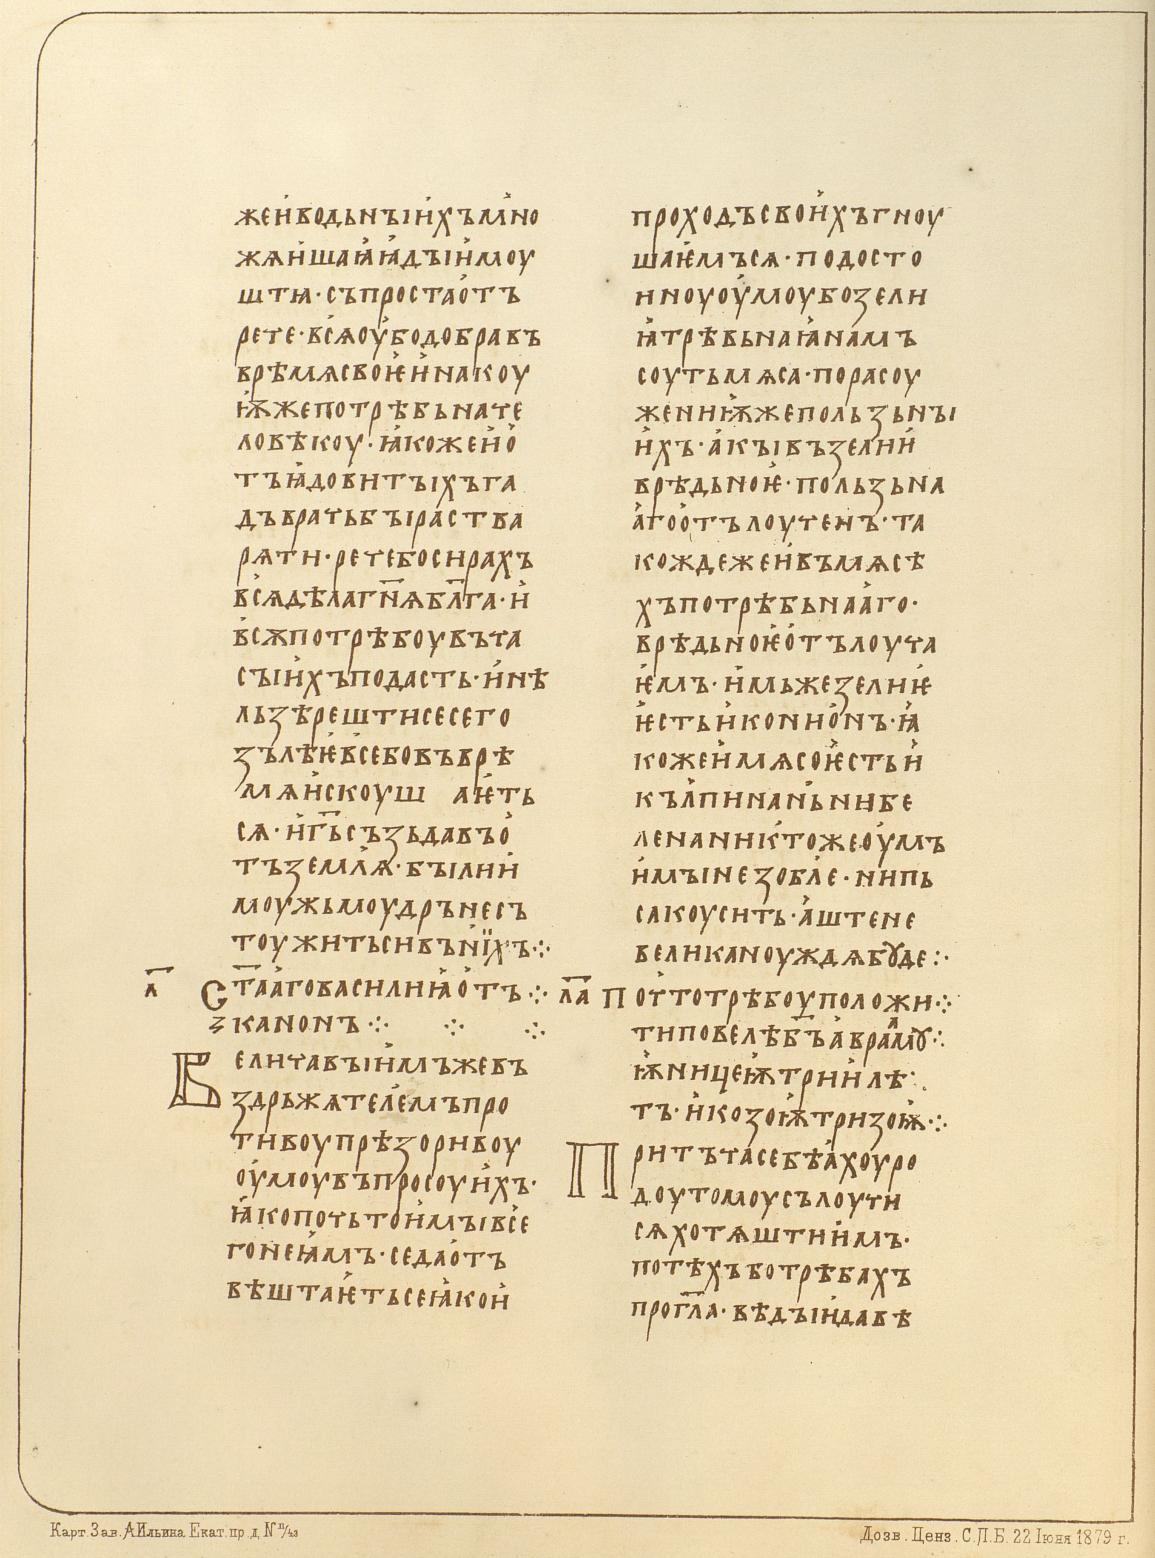 жеи҆водьнъіи҆хъмⷩ҇но
жѧи҆шаꙗ҆ꙗ҆дъіи҆моу
штѩ·съпростао҆тъ
рече·всѧоу҆бодобравъ
врѣмѧсвоѥ҆и҆накоу
ѭ҆жепотрѣбьначе
ловѣкоу·ꙗ҆кожеи҆о҆
тъꙗ҆довитъіхъга
дъврачьбъіраства
рѧти·речебосирахъ
всѧдѣлагн҃ѧбл҃га·и҆
всѫпотрѣбоувъча
съіи҆хъподасть·и҆нѣ
льзѣрештисесего
зълѣѥ҆всебовъврѣ
мѧи҆скоуш аѥ҆ть
сѧ·и҆г҃ьсъзьдавъо҆
тъземлѧ·бъілии҆
моужьмоудрънесъ
тоужитьсивъни҆хъ⁘
л҃ ст҃ааговасилиꙗ҆о҆тъ⁘
зканонъ⁘ ⁘ ⁘
величавъіи҆мъжевъ
здрьжѧтелемъпро
тивоупрѣзоривоу
оу҆моувъпросоуи҆хъ·
ꙗ҆копочьтои҆мъівсе
гонеꙗ҆мъ·седао҆тъ
вѣштаѥ҆тьсеꙗ҆кои҆
проходъсвои҆хъгноу
шаѥ҆мъсѧ·подосто
и҆ноуоу҆моубозели
ꙗ҆трѣвьнаꙗ҆намъ
соутьмѧса·порасоу
жениѭ҆жепользьнъі
и҆хъ·а҆къівъзелии҆
врѣдьноѥ҆·пользьна
а҆гоо҆тълоученъ·та
кождежеи҆въмѧсѣ
хъпотрѣбьнаа҆го·
врѣдьноѥ҆о҆тълоуча
ѥ҆мъ·и҆мьжезелиѥ҆
ѥ҆стьи҆кониѡнъ·ꙗ҆
кожеи҆мѧсоѥ҆стьи҆
къпинанънибе
лѥнаниктожеоу҆мъ
и҆мъінезобле·нипь
сакоусить·а҆штене
великаноуждѧбꙋде⁘
л҃а почтотрѣбоуположи⁘
типовелѣб҃ъа҆враамꙋ⁘
ѭ҆ницеѭ҆трии҆лѣ⁖
тъ·и҆козоѭ҆тризоѭ҆⁘
притъчасебѣа҆хоуро
доутомоусълоучи
сѧхотѧштии҆мъ·
потѣхъботрѣбахъ
прогл҃а·вѣдъіи҆давѣ
Карт. Зав. А.Ильина. Екат. пр. д. N 11/43
Дозв. Ценз. С.П.Б. 22 Іюня 1879 г.